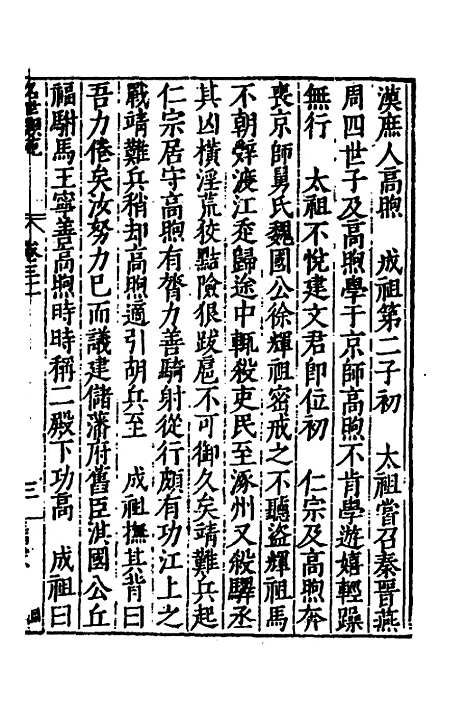 漢庶人高煦　成祖第二子初　太祖嘗召秦晋燕
周四世子及高煦學于京師高煦不肯學遊嬉輕躁
無行　太祖不悅建文君卽位初　仁宗及高煦奔
喪京師舅氏魏國公徐輝祖密戒之不聽盜輝祖馬
不朝辤渡江走歸途中輒殺吏民至涿州又殺驛丞
其凶橫淫荒狡黠險佷跋扈不可御久矣靖難兵起
仁宗居守高煦有膂力善騎射從行頗有功江上之
戰靖難兵稍却高煦適引胡兵至　成祖撫其背曰
吾力倦矣汝努力已而議建儲藩府舊臣淇國公丘
福駙馬王寧善高煦時時稱二殿下功高　成祖曰